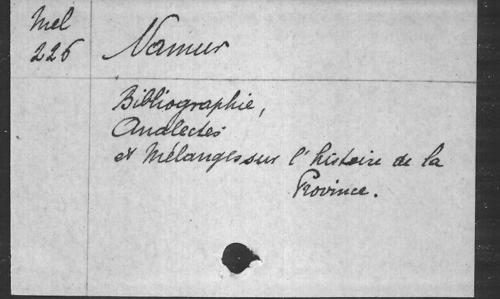 Mel
226
Namur
Bibliographie,
Analectes
et Mélanges sur l'histoire de la
Province.